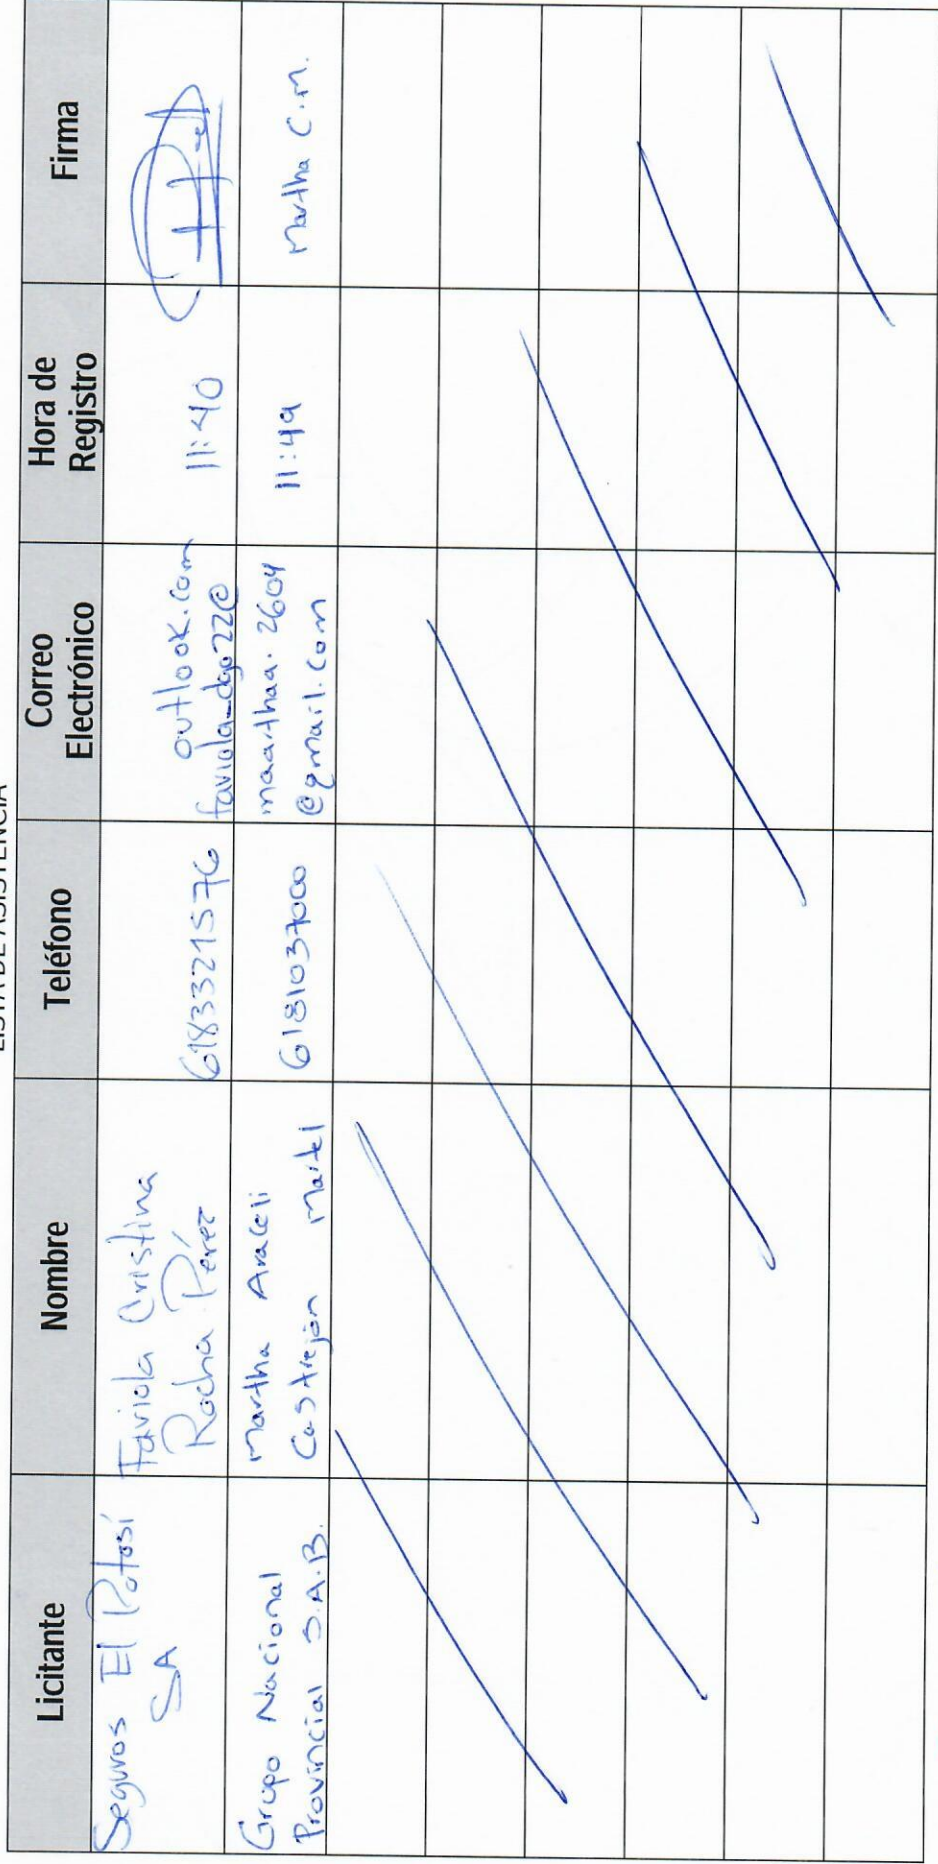 LISTA DE ASISTENCIA
Licitante
Nombre
Teléfono
Correo
Electrónico
Hora de
Registro
Firma
Seguros El Potosí
SA
Faviola Cristina
Rocha Pérez
6183321576
outlook.com
faviola_dgo22@
11:40
Grupo Nacional
Provincial S.A.B.
Martha Araceli
Castrejón Martel
6181037000
maarthaa.2604
@gmail.com
11:49
Martha C.M.